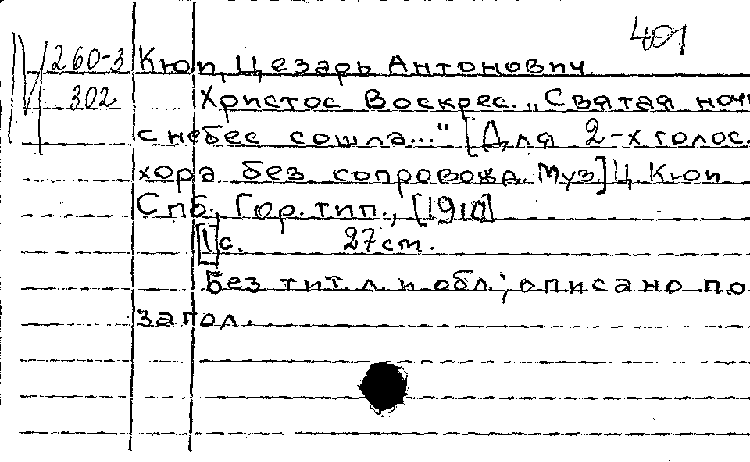 401
М 260-3 Кюи, Цезарь Антонович
302 Христос Воскрес. „Святая ночь
с небес сошла..." [Для 2-х голос.
хора без сопровожд. Муз.] Ц. Кюи
Спб., Гор. тип., [1910]
[1] с. 27 cm.
Без тит. л. и обл.; описано по
загол.